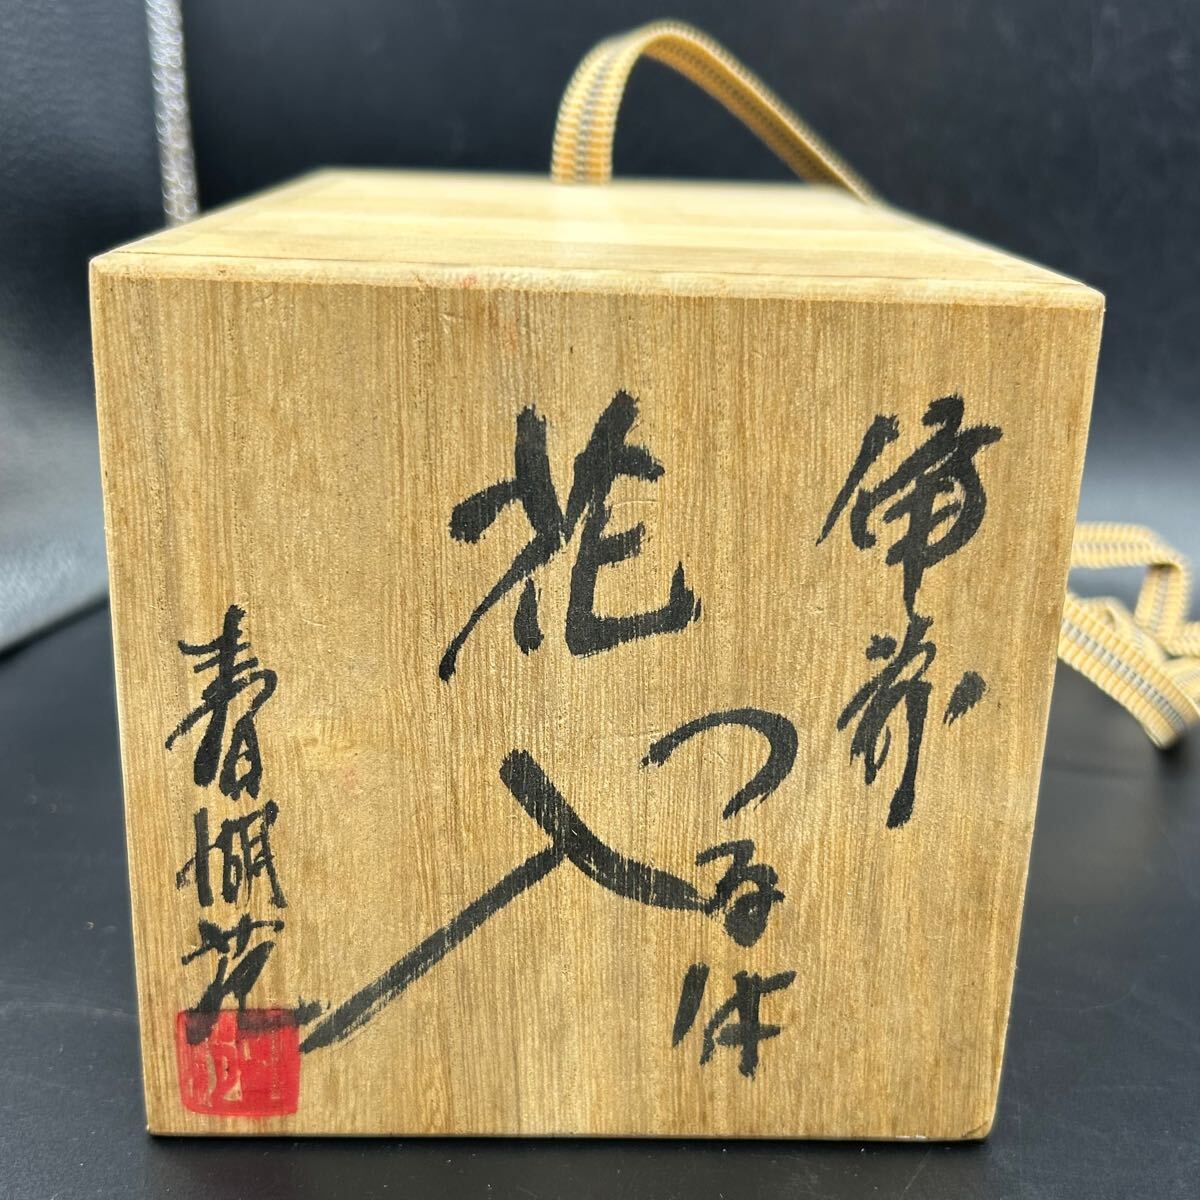 備前
つる付
花入
春湖